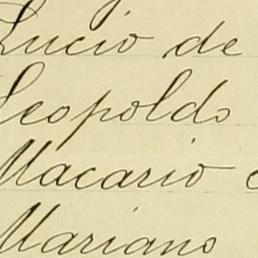 Lucio de
Leopoldo
Macario
Mariano